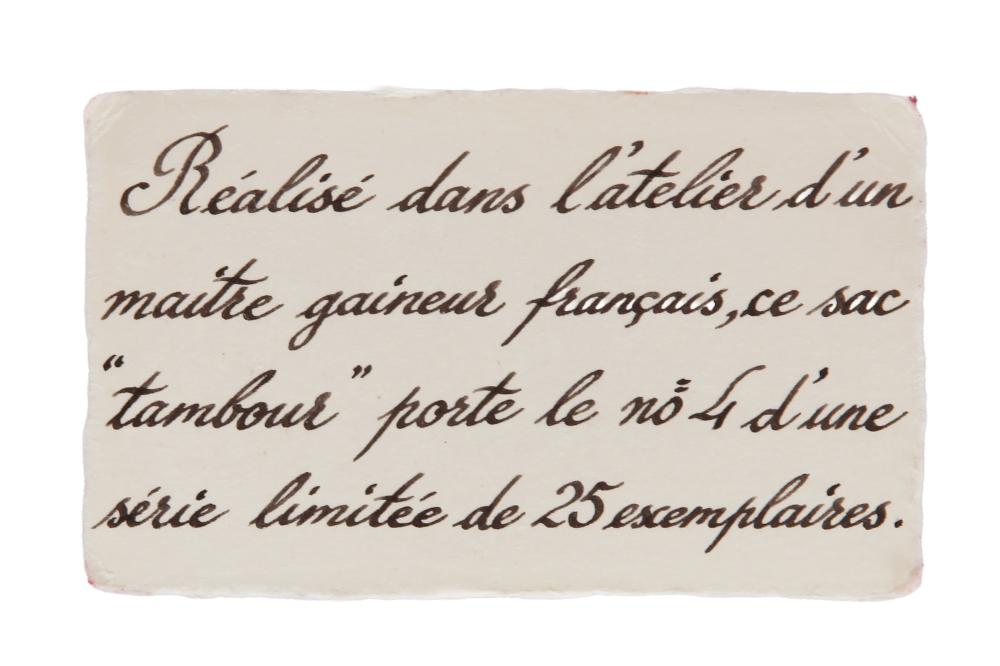 Réalisé dans l'atelier d'un
maitre gaineur français, ce sac
“tambour” porte le no 4 d'une
série limitée de 25 exemplaires.